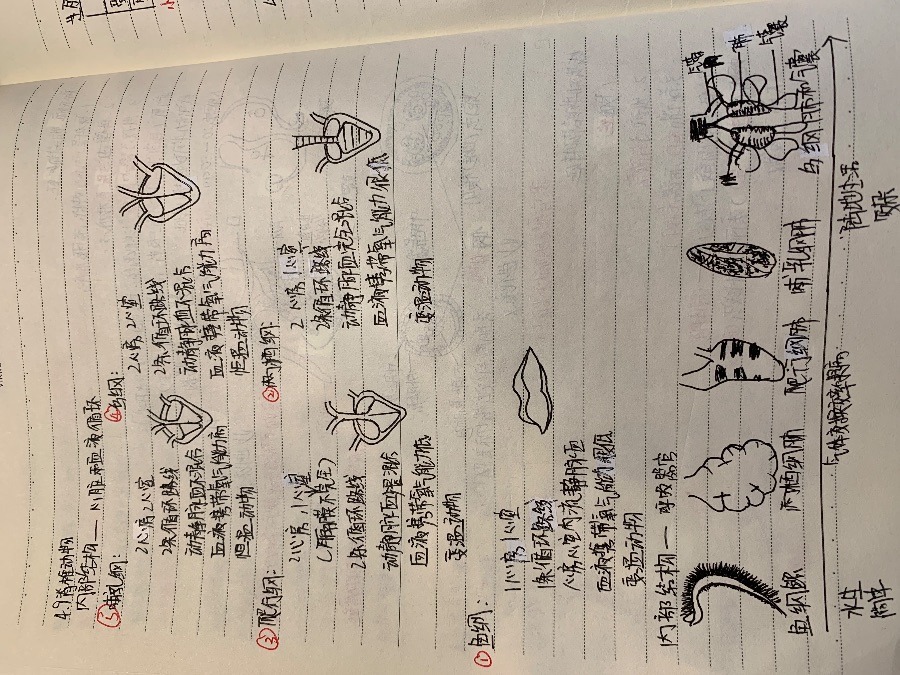 4.9 脊椎动物
内部结构 —— 心脏和血液循环
⑤哺乳纲：
2心房2心室
2条循环路线
动静脉血不混合
血液携带氧气能力高
恒温动物
④鸟纲：
2心房2心室
2条循环路线
动静脉血不混合
血液携带氧气能力高
恒温动物
③爬行纲：
2心房，1心室
（隔膜不完全）
2条循环路线
动静脉血混合
血液携带氧气能力低
变温动物
②两栖纲：
2心房1心室
2条循环路线
动静脉血完全混合
血液携带氧气能力很低
变温动物
①鱼纲：
1心房1心室
1条循环路线
心房心室内流静脉血
血液携带氧气能力很低
变温动物
内部结构 — 呼吸器官
气囊
肺
气囊
鱼纲鳃
两栖纲肺
爬行纲肺
哺乳纲肺
鸟纲肺和气囊
水生
简单
气体交换效率提高
陆地生活
复杂